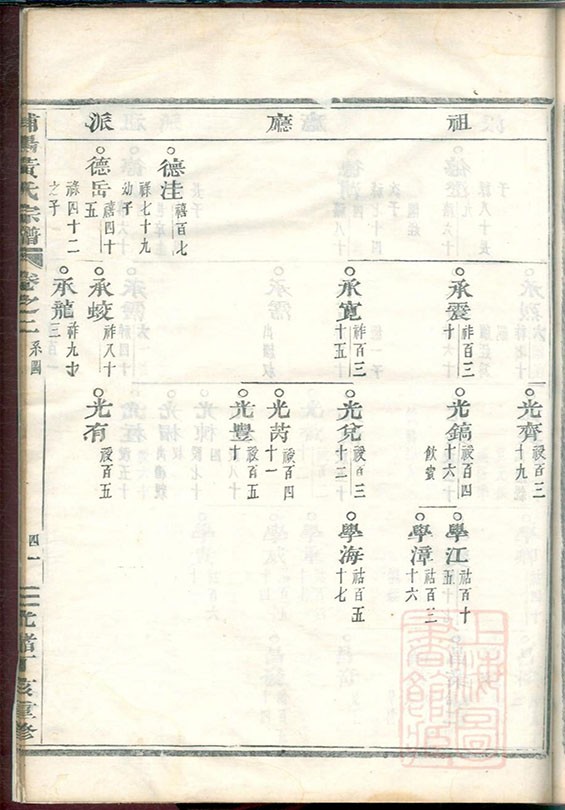 祖廳派
光齊 祾百三十九
承震 祚百三十
光鎬 祾百四十六 飲賓
學江 祜百十五
學漳 祜百三十六
承寬 祚百三十五
光兌 祾百三十二
學海 祜百五十七
光芮 祾百四十一
光豐 祾百五十
德洼 禧百七
祿七十九幼子
德岳 禧四十五
祿四十二之子
承蛟 祚八十
光有 祾百五
承龍 祚九十三
浦陽黃氏宗譜 卷之二 系圖 四一 光緒丁亥重修
上海圖書館藏